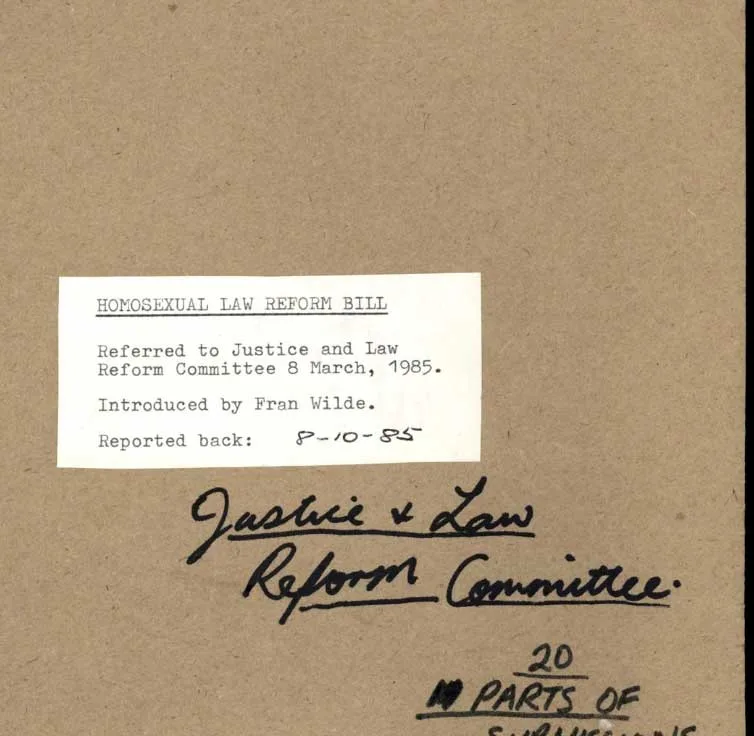 HOMOSEXUAL LAW REFORM BILL
Referred to Justice and Law
Reform Committee 8 March, 1985.
Introduced by Fran Wilde.
Reported back: 8-10-85
Justice & Law
Reform Committee.
20
PARTS OF